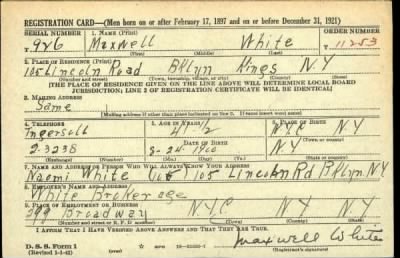 REGISTRATION CARD—(Men born on or after February 17, 1897 and on or before December 31, 1921)
SERIAL NUMBER 1. NAME (Print) ORDER NUMBER
T 926 Maxwell White 11253
(First) (Middle) (Last)
2. PLACE OF RESIDENCE (Print)
105 Lincoln Road BKlyn Kings NY
(Number and street) (Town, township, village, or city) (County) (State)
[THE PLACE OF RESIDENCE GIVEN ON THE LINE ABOVE WILL DETERMINE LOCAL BOARD
JURISDICTION; LINE 2 OF REGISTRATION CERTIFICATE WILL BE IDENTICAL]
3. MAILING ADDRESS
Same
[Mailing address if other than place indicated on line 2. If same insert word same]
4. TELEPHONE 5. AGE IN YEARS 6. PLACE OF BIRTH
Ingersoll 41 1/2 NYC
DATE OF BIRTH (Town or county)
2-3238 8-24-1900 NY
(Exchange) (Number) (Mo.) (Day) (Yr.) (State or country)
7. NAME AND ADDRESS OF PERSON WHO WILL ALWAYS KNOW YOUR ADDRESS
Naomi White 105 Lincoln Rd BKlyn NY
8. EMPLOYER'S NAME AND ADDRESS
White Brokerage
9. PLACE OF EMPLOYMENT OR BUSINESS
299 Broadway NYC NY NY
(Number and street or R. F. D. number) (Town) (County) (State)
I AFFIRM THAT I HAVE VERIFIED ABOVE ANSWERS AND THAT THEY ARE TRUE.
D. S. S. Form 1
(Revised 1-1-42) Maxwell White
(Registrant's signature)